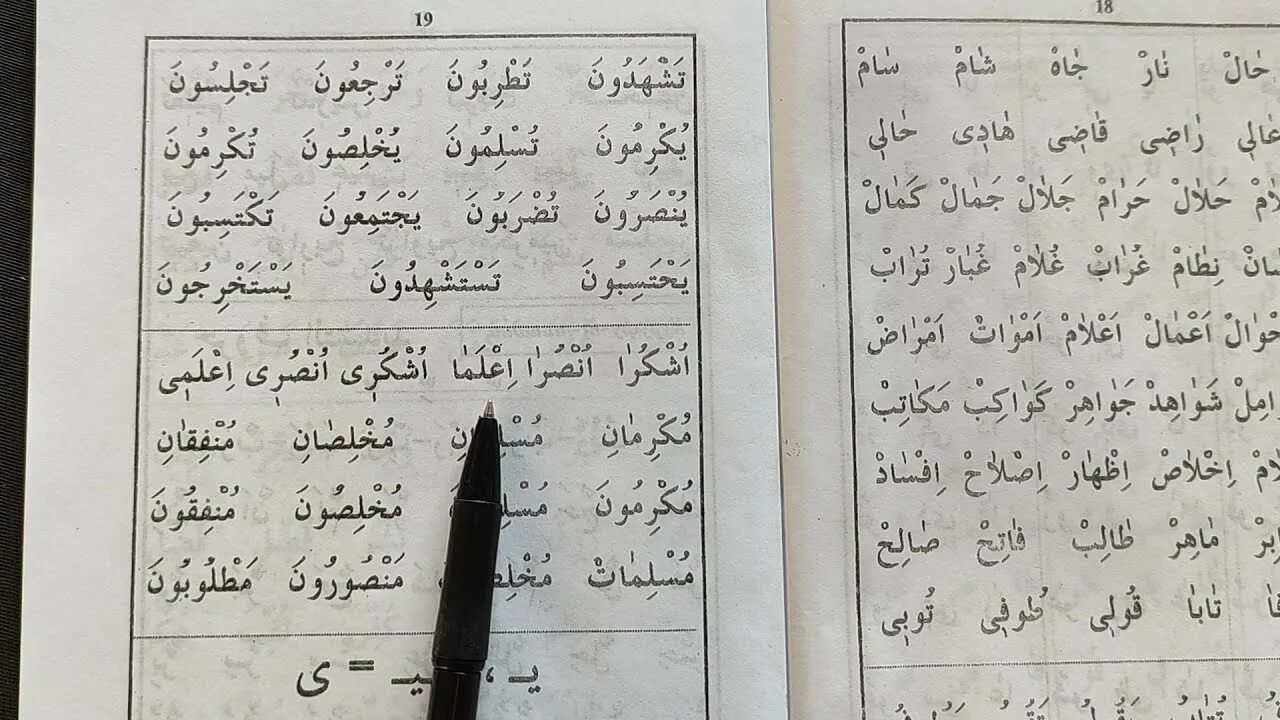 19
تَشْهَدُونَ تَطْرِبُونَ تَرْجِعُونَ تَجْلِسُونَ
يُكْرِمُونَ تُسْلِمُونَ يُخْلِصُونَ تُكْرِمُونَ
يُنْصَرُونَ تُضْرَبُونَ يَجْتَمِعُونَ تَكْتَسِبُونَ
يَحْتَسِبُونَ تَسْتَشْهِدُونَ يَسْتَخْرِجُونَ
اُشْكُرٰا اُنْصُرٰا اِعْلَمٰا اُشْكُرٖى اُنْصُرٖى اِعْلَمٖى
مُكْرِمٰانِ مُخْلِصٰانِ مُنْفِقٰانِ
مُكْرِمُونَ مُخْلِصُونَ مُنْفِقُونَ
مُسْلِمٰاتْ مَنْصُورُونَ مَطْلُوبُونَ
يـ ، ـيـ = ى
18
حٰالْ نٰارْ جٰاهْ شٰامْ سٰامْ
عٰالٖي رٰاضٖى قٰاضٖى هٰادٖى خٰالٖي
حَلٰالْ حَرٰامْ جَلٰالْ جَمٰالْ كَمٰالْ
نِظٰامْ غُرٰابْ غُلٰامْ غُبٰارْ تُرٰابْ
اَعْمٰالْ اَعْلٰامْ اَمْوٰاتْ اَمْرٰاضْ
شَوٰاهِدْ جَوٰاهِرْ كَوٰاكِبْ مَكٰاتِبْ
اِخْلٰاصْ اِظْهٰارْ اِصْلٰاحْ اِفْسٰادْ
مٰاهِرْ طٰالِبْ فٰاتِحْ صٰالِحْ
تٰابٰا قُولٖي طُوفٖي تُوبٖي